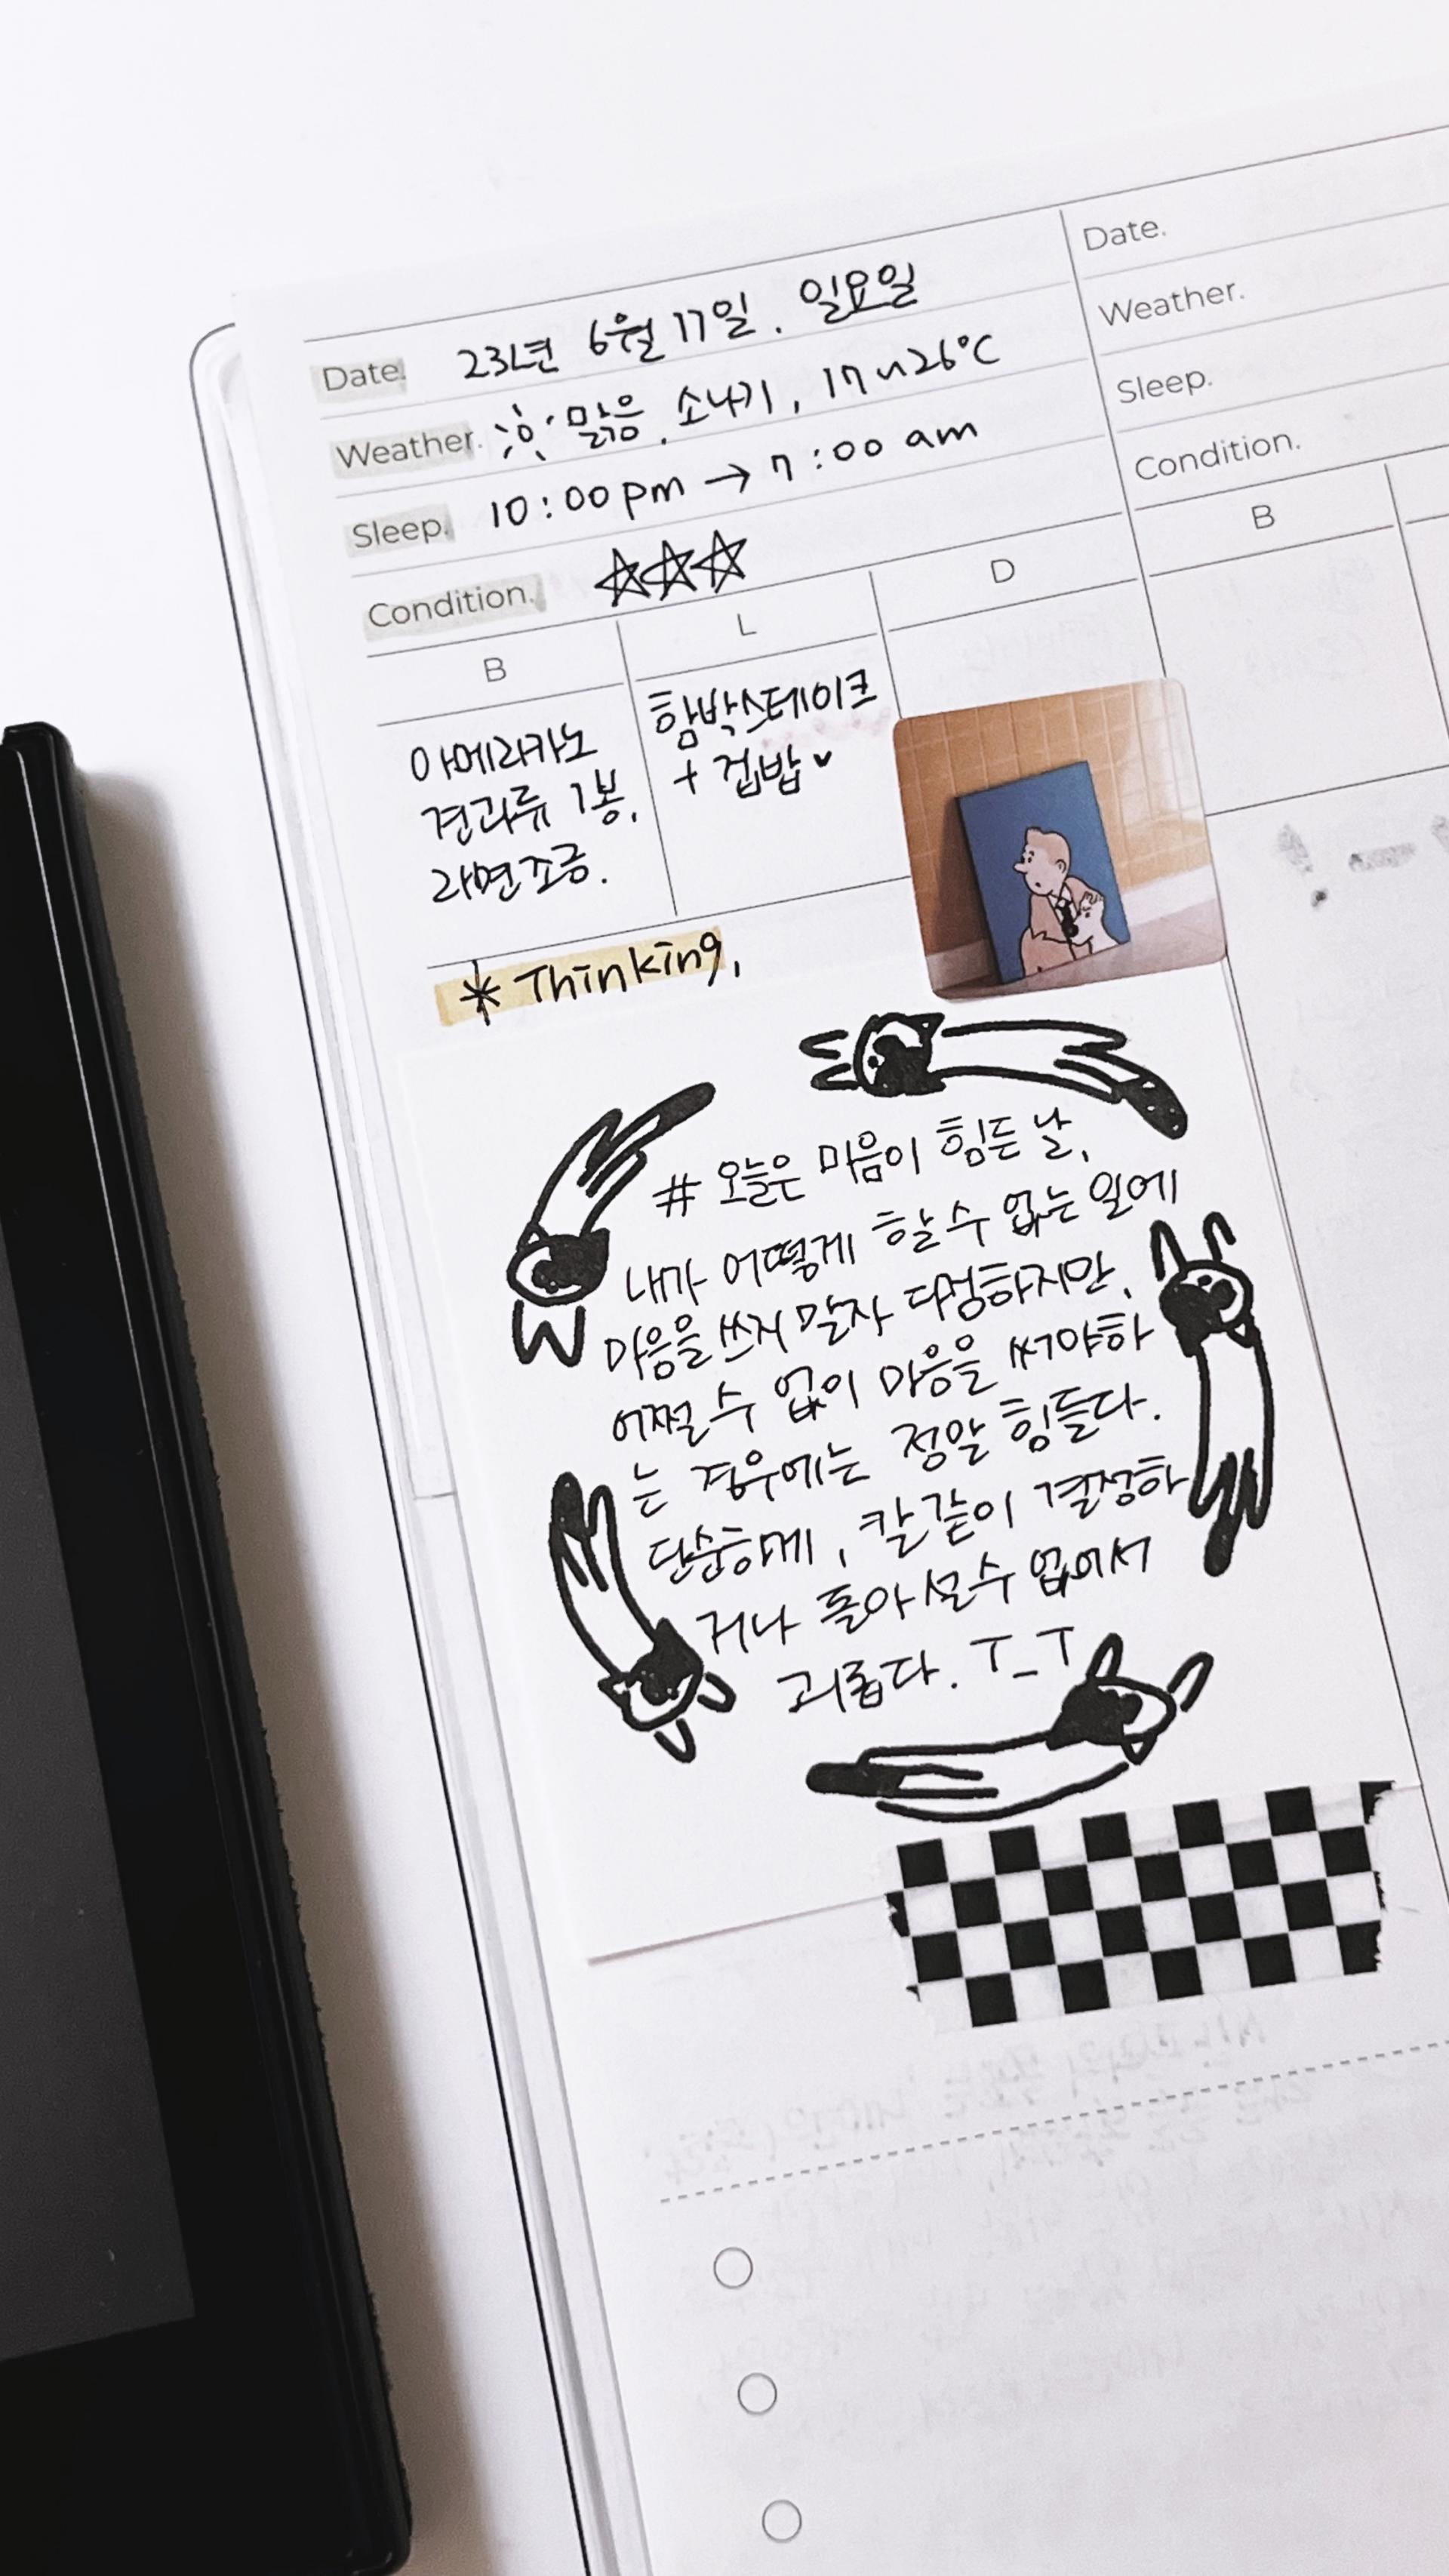 Date. 23년 6월 17일. 일요일
Weather. 맑음, 소나기, 17~26°C
Sleep. 10:00pm → 7:00 am
Condition. ☆☆☆
B
L
D
아메리카노
견과류 1봉,
라면조금.
함박스테이크
+ 컵밥♥
* Thinking,
# 오늘은 마음이 힘든 날,
내가 어떻게 할 수 없는 일에
마음을 쓰지 말자 다정하지만,
어쩔 수 없이 마음을 써야하
는 경우에는 정말 힘들다.
단순하게, 칼같이 결정하
거나 돌아설 수 없어서
괴롭다. T_T
Date.
Weather.
Sleep.
Condition.
B